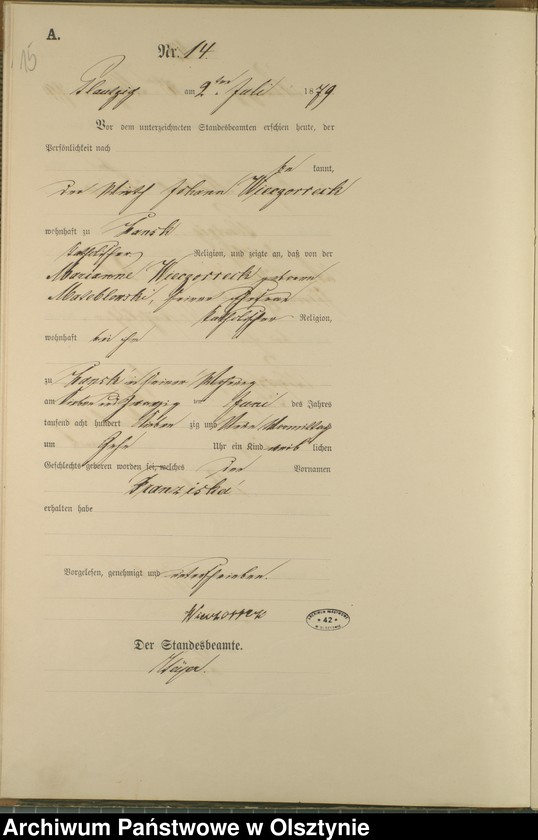 A.
15
Nr. 14.
Plautzig am 2ten Juli 1879
Vor dem unterzeichneten Standesbeamten erschien heute, der
Persönlichkeit nach
be kannt,
der Wirth Johann Wieczorreck
wohnhaft zu Lansk
katholischer Religion, und zeigte an, daß von der
Marianne Wieczorreck geborene
seiner Ehefrau
katholischer Religion,
wohnhaft bei ihm
zu Lansk in seiner Wohnung
am sieben und zwanzig ten Juni des Jahres
tausend acht hundert sieben zig und neun Vormittags
um zehn Uhr ein Kind weib lichen
Geschlechts geboren worden sei, welches den Vornamen
Franziska
erhalten habe
Vorgelesen, genehmigt und unterschrieben.
Wieczorrek
ARCHIWUM PAŃSTWOWE
* 42 *
W OLSZTYNIE
Der Standesbeamte.
Archiwum Państwowe w Olsztynie